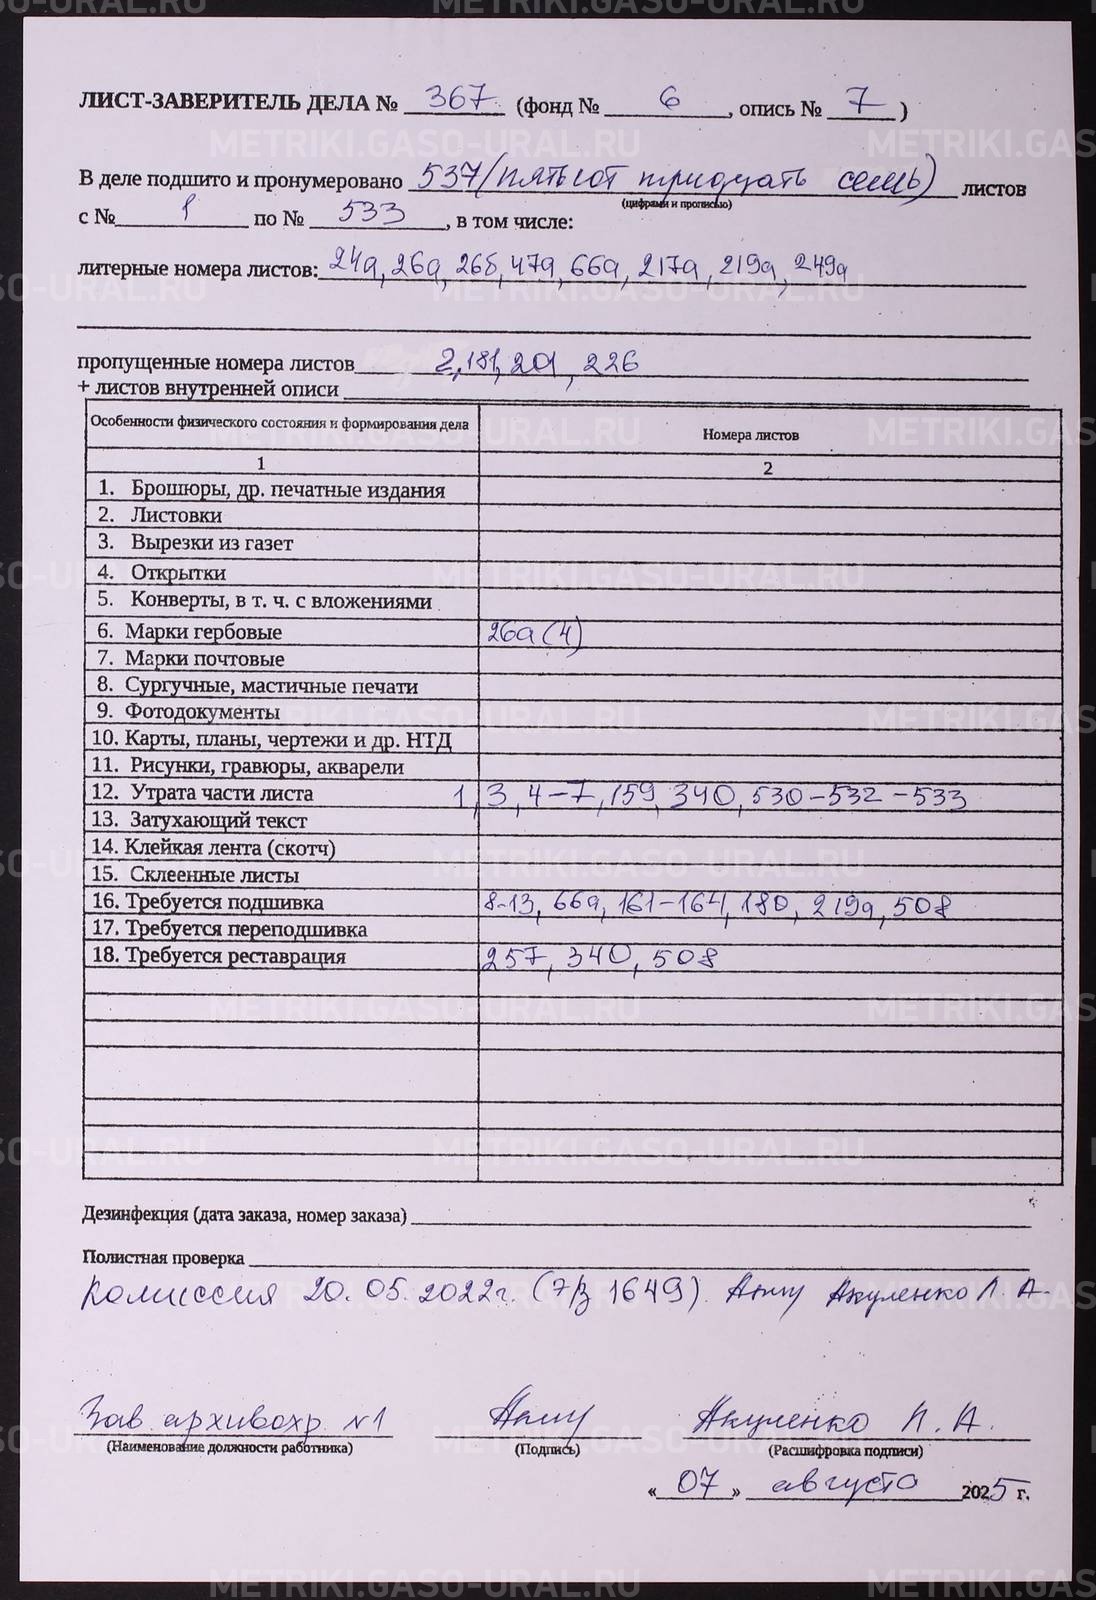 ЛИСТ-ЗАВЕРИТЕЛЬ ДЕЛА № 367 (фонд № 6, опись № 7)
В деле подшито и пронумеровано 537 (пятьсот тридцать семь) листов
(цифрами и прописью)
с № 1 по № 533, в том числе:
литерные номера листов: 24а, 26а, 26б, 47а, 66а, 217а, 219а, 249а
пропущенные номера листов 2, 181, 201, 226
+ листов внутренней описи
Особенности физического состояния и формирования дела Номера листов
1 2
1. Брошюры, др. печатные издания
2. Листовки
3. Вырезки из газет
4. Открытки
5. Конверты, в т. ч. с вложениями
6. Марки гербовые 26а (4)
7. Марки почтовые
8. Сургучные, мастичные печати
9. Фотодокументы
10. Карты, планы, чертежи и др. НТД
11. Рисунки, гравюры, акварели
12. Утрата части листа 1, 3, 4-7, 159, 340, 530-532-533
13. Затухающий текст
14. Клейкая лента (скотч)
15. Склеенные листы
16. Требуется подшивка 8-13, 66а, 161-164, 180, 219а, 508
17. Требуется переподшивка
18. Требуется реставрация 257, 340, 508
Дезинфекция (дата заказа, номер заказа)
Полистная проверка
Комиссия 20.05.2022г. (7/3 1649). Акуленко Л. А.
Зав. архивохр. №1 Акуленко Л. А.
(Наименование должности работника) (Подпись) (Расшифровка подписи)
«07» августа 2025 г.
METRIKI.GASO-URAL.RU